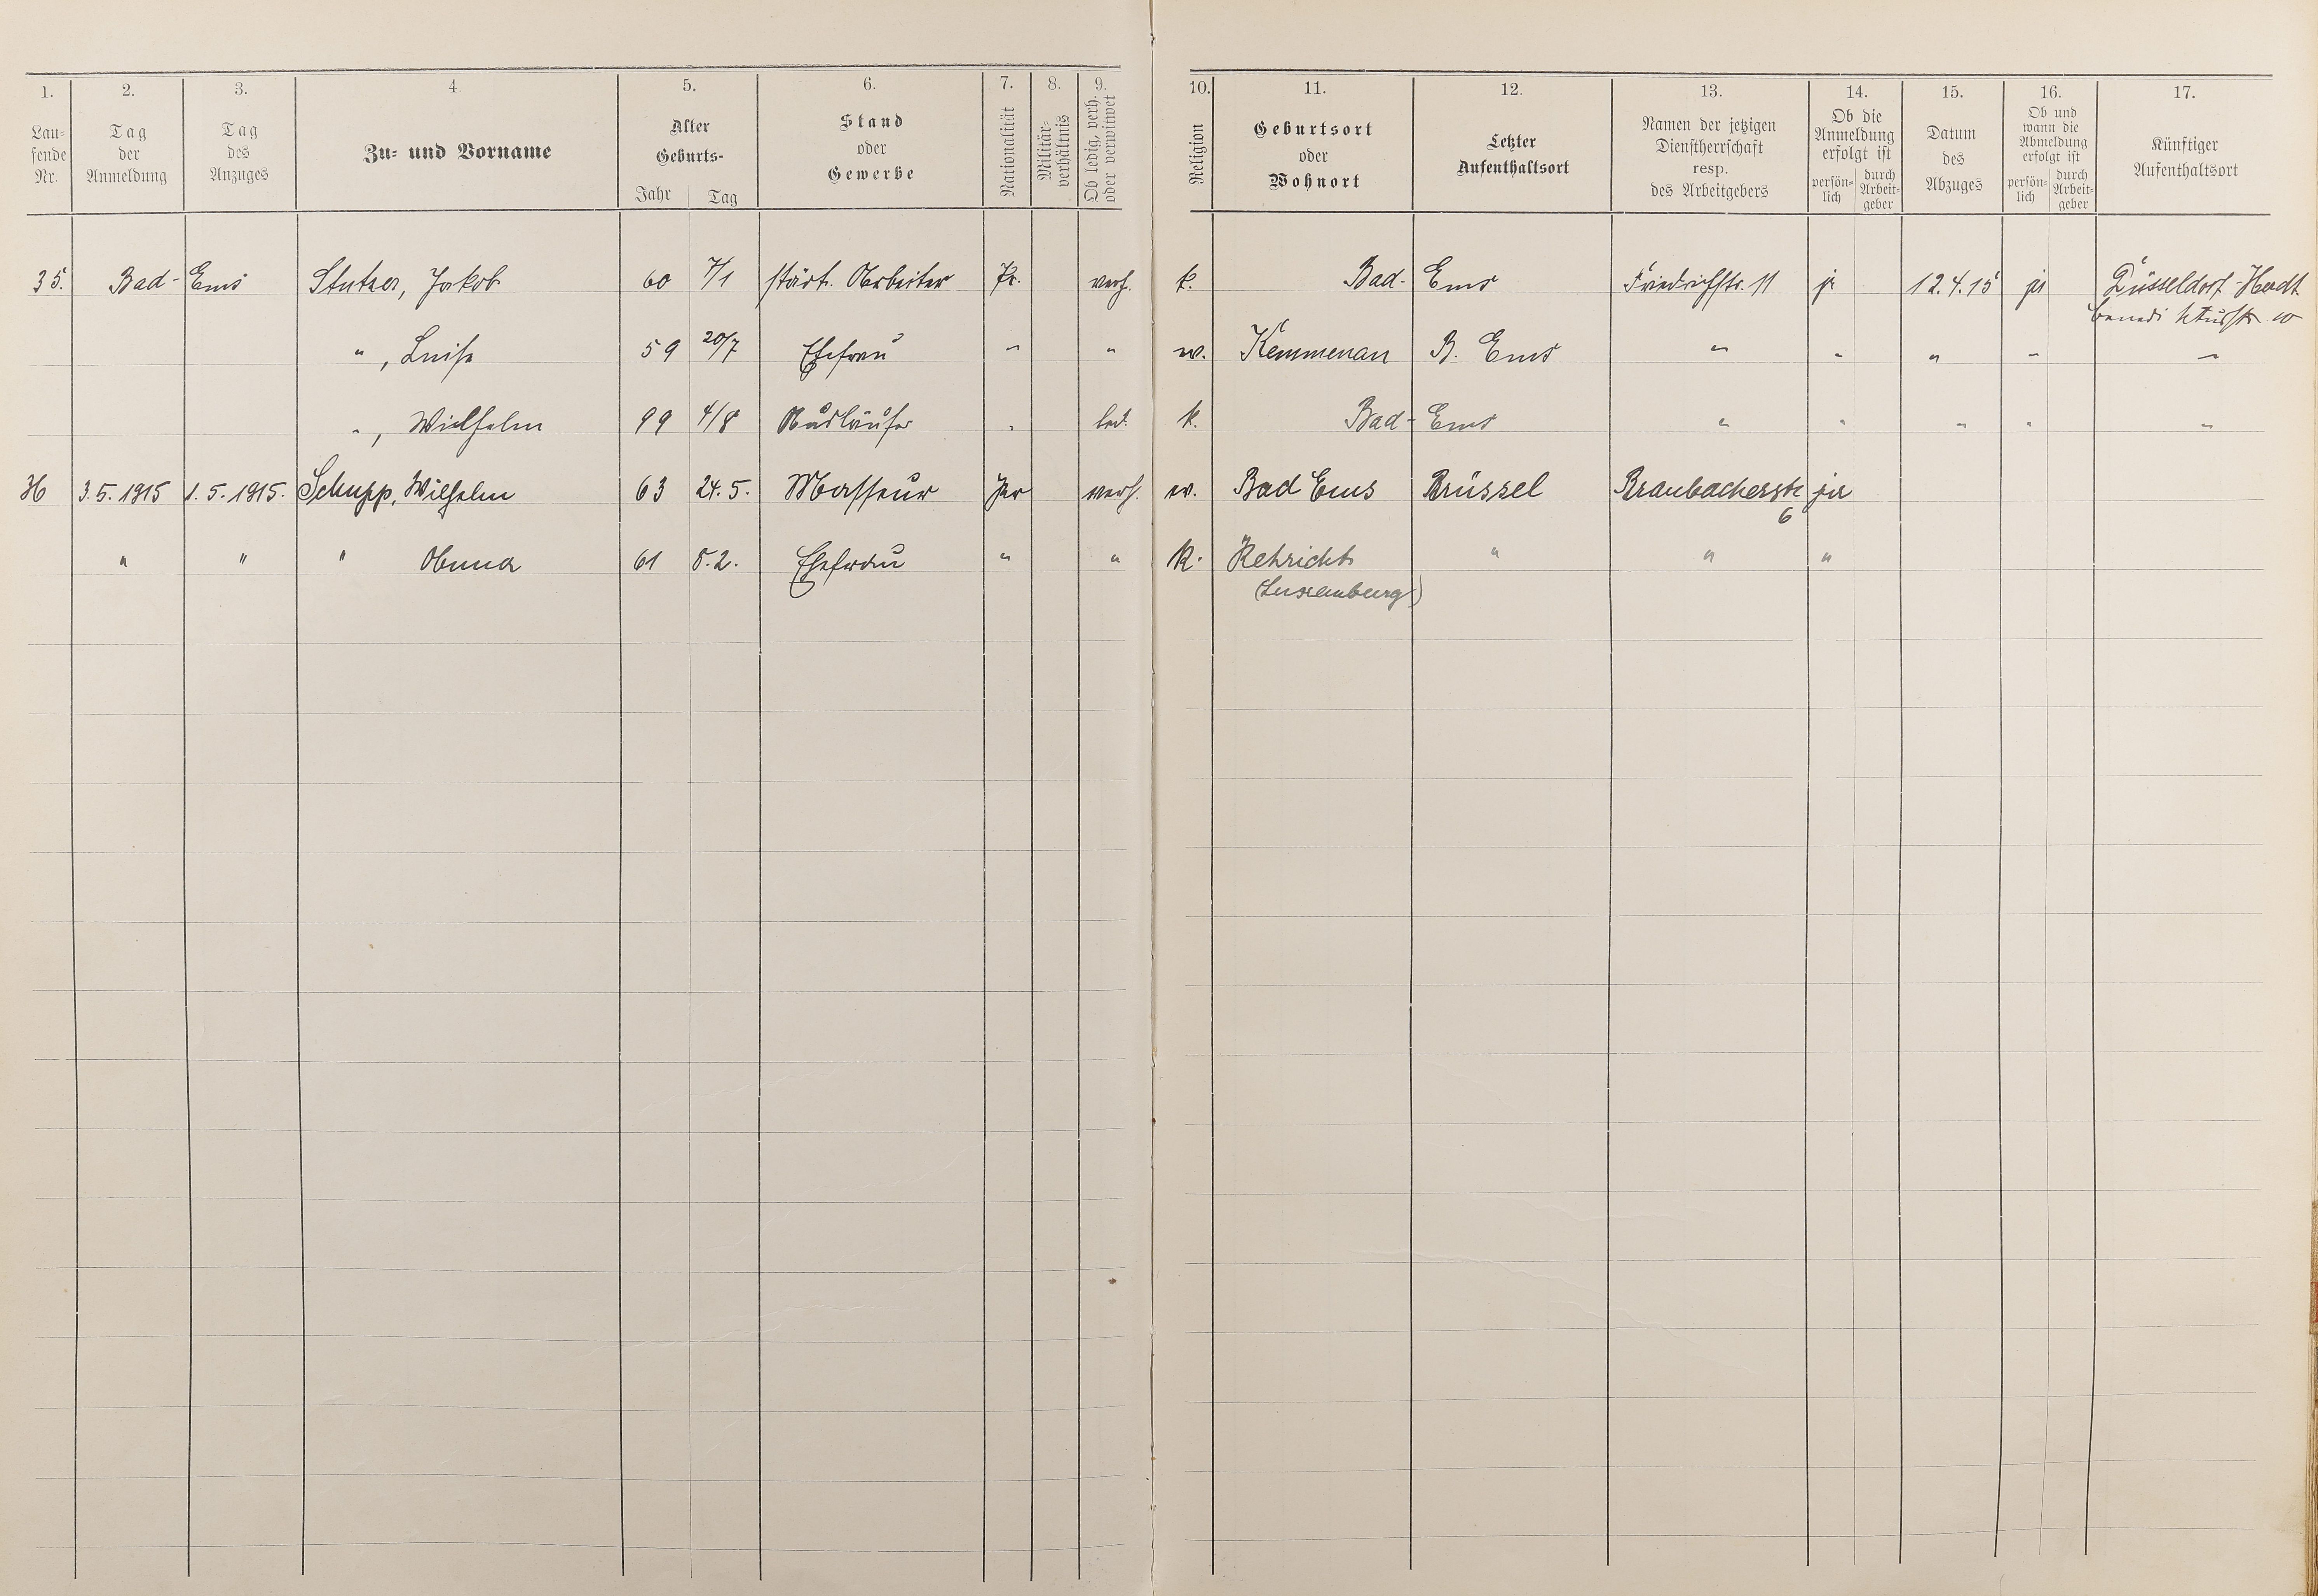 1. 2. 3. 4 5. 6. 7. 8. 9. 10. 11. 12. 13. 14. 15. 16. 17.
Lau-
fende
Nr.
Tag
der
Anmeldung
Tag
des
Anzuges
Zu- und Vorname
Alter
Geburts-
Jahr Tag
Stand
oder
Gewerbe
Nationalität
Militär-
verhältnis
Ob ledig, verh.
oder verwitwet
Religion
Geburtsort
oder
Wohnort
Letzter
Aufenthaltsort
Namen der jetzigen
Dienstherrschaft
resp.
des Arbeitgebers
Ob die
Anmeldung
erfolgt ist
persön-
lich
durch
Arbeit-
geber
Datum
des
Abzuges
Ob und
wann die
Abmeldung
erfolgt ist
persön-
lich
durch
Arbeit-
geber
Künftiger
Aufenthaltsort
35. Bad-Ems Stutzer, Jakob 60 7/1 städt. Arbeiter Pr. verh. k. Bad-Ems Friedrichstr. 11 ja 12.4.15 ja Düsseldorf-Heerdt
" , Luise 59 20/7 Ehefrau " " Kemmenau B. Ems " " " " "
" , Wilhelm 99 4/8 Ausläufer " led. k. Bad-Ems " " " " "
3.5.1915 1.5.1915. Schupp, Wilhelm 63 24.5. Masseur verh. ev. Bad Ems Brüssel Braubacherstr ja
6
" " " Anna 61 5.2. Ehefrau " " k. " " "
(Luxemburg)